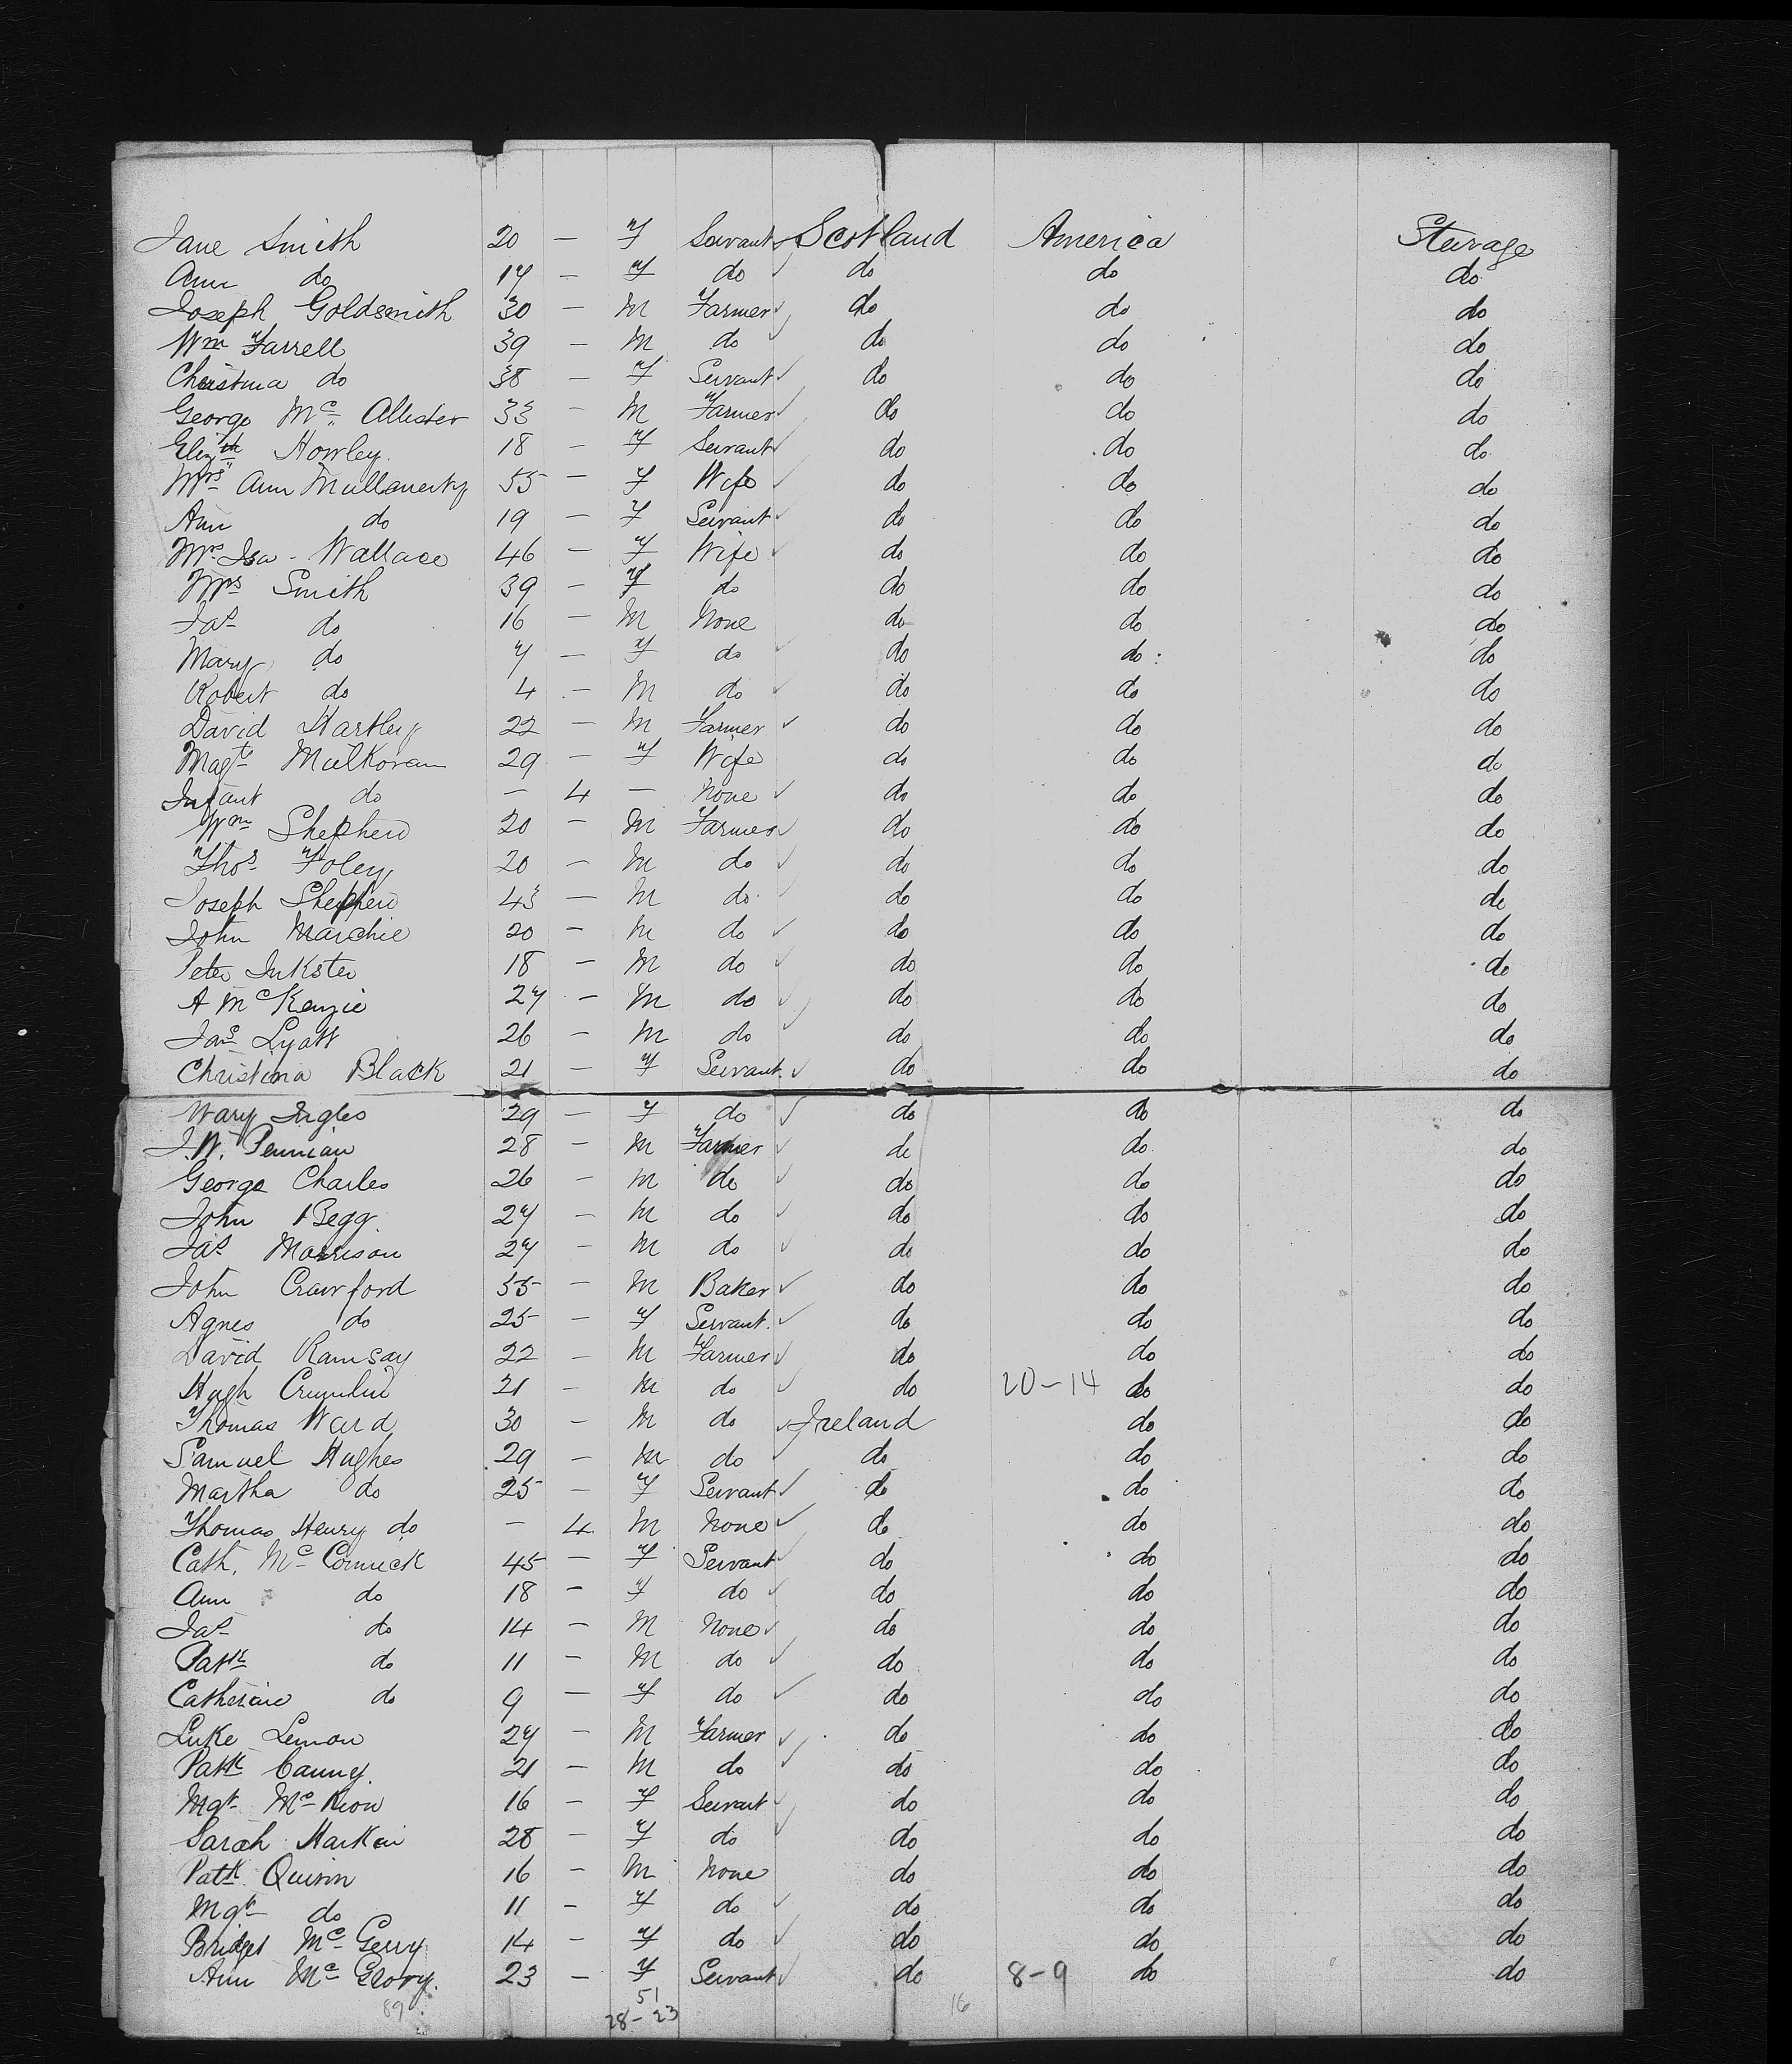 Jane Smith 20 — F Servant Scotland America Steerage
Ann do 17 — F do do do do
Joseph Goldsmith 30 — M Farmer do do do
Wm Farrell 39 — M do do do do
Christina do 38 — F Servant do do do
George Mc Allister 33 — M Farmer do do do
Elizth Howley 18 — F Servant do do do
Mrs Ann Mullanerty 55 — F Wife do do do
Ann do 19 — F Servant do do do
Mrs Isa - Wallace 46 — F Wife do do do
Mrs Smith 39 — F do do do do
Jas do 16 — M None do do do
Mary do 7 — F do do do do
Robert do 4 — M do do do do
David Hartley 22 — M Farmer do do do
Magt Mulkoran 29 — F Wife do do do
Infant do — 4 — None do do do
Wm Shepherd 20 — M Farmer do do do
Thos Foley 20 — M do do do do
Joseph Shepherd 43 — M do do do do
John Marchie 20 — M do do do do
Peter Inkster 18 — M do do do do
A McKenzie 27 — M do do do do
Jas Lyatt 26 — M do do do do
Christina Black 21 — F Servant do do do
Mary Ingles 29 — F do do do do
J.W. Pennian 28 — M Farmer do do do
George Charles 26 — M do do do do
John Begg 27 — M do do do do
Jas Morrison 27 — M do do do do
John Crawford 35 — M Baker do do do
Agnes do 25 — F Servant do do do
David Ramsay 22 — M Farmer do do do
Hugh 21 — M do do 20-14 do do
Thomas Ward 30 — M do Ireland do do
Samuel Hughes 29 — M do do do do
Martha do 25 — F Servant do do do
Thomas Henry do — 4 M None do do do
Cath. Mc Cormick 45 — F Servant do do do
Ann do 18 — F do do do do
Jas do 14 — M None do do do
Patk do 11 — M do do do do
Catherine do 9 — F do do do do
Luke Lemon 27 — M Farmer do do do
Patk Canny. 21 — M do do do do
Mgt Mc Keon 16 — F Servant do do do
Sarah Harkin 28 — F do do do do
Patk Quinn 16 — M None do do do
Mgt do 11 — F do do do do
Bridget Mc Gerry 14 — F do do do do
Ann Mc Grory. 23 — F Servant do 8-9 do do
89 51 16
28-23